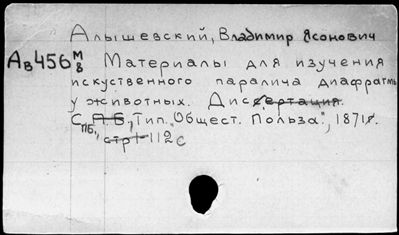 Алышевский, Владимир Ясонович
Ав456 М/8 Материалы для изучения
искуственного паралича диафрагмы
у животных. Диссертация.
С.ПБ., Тип. "Общест. Польза", 1871.
стр 1-112 с